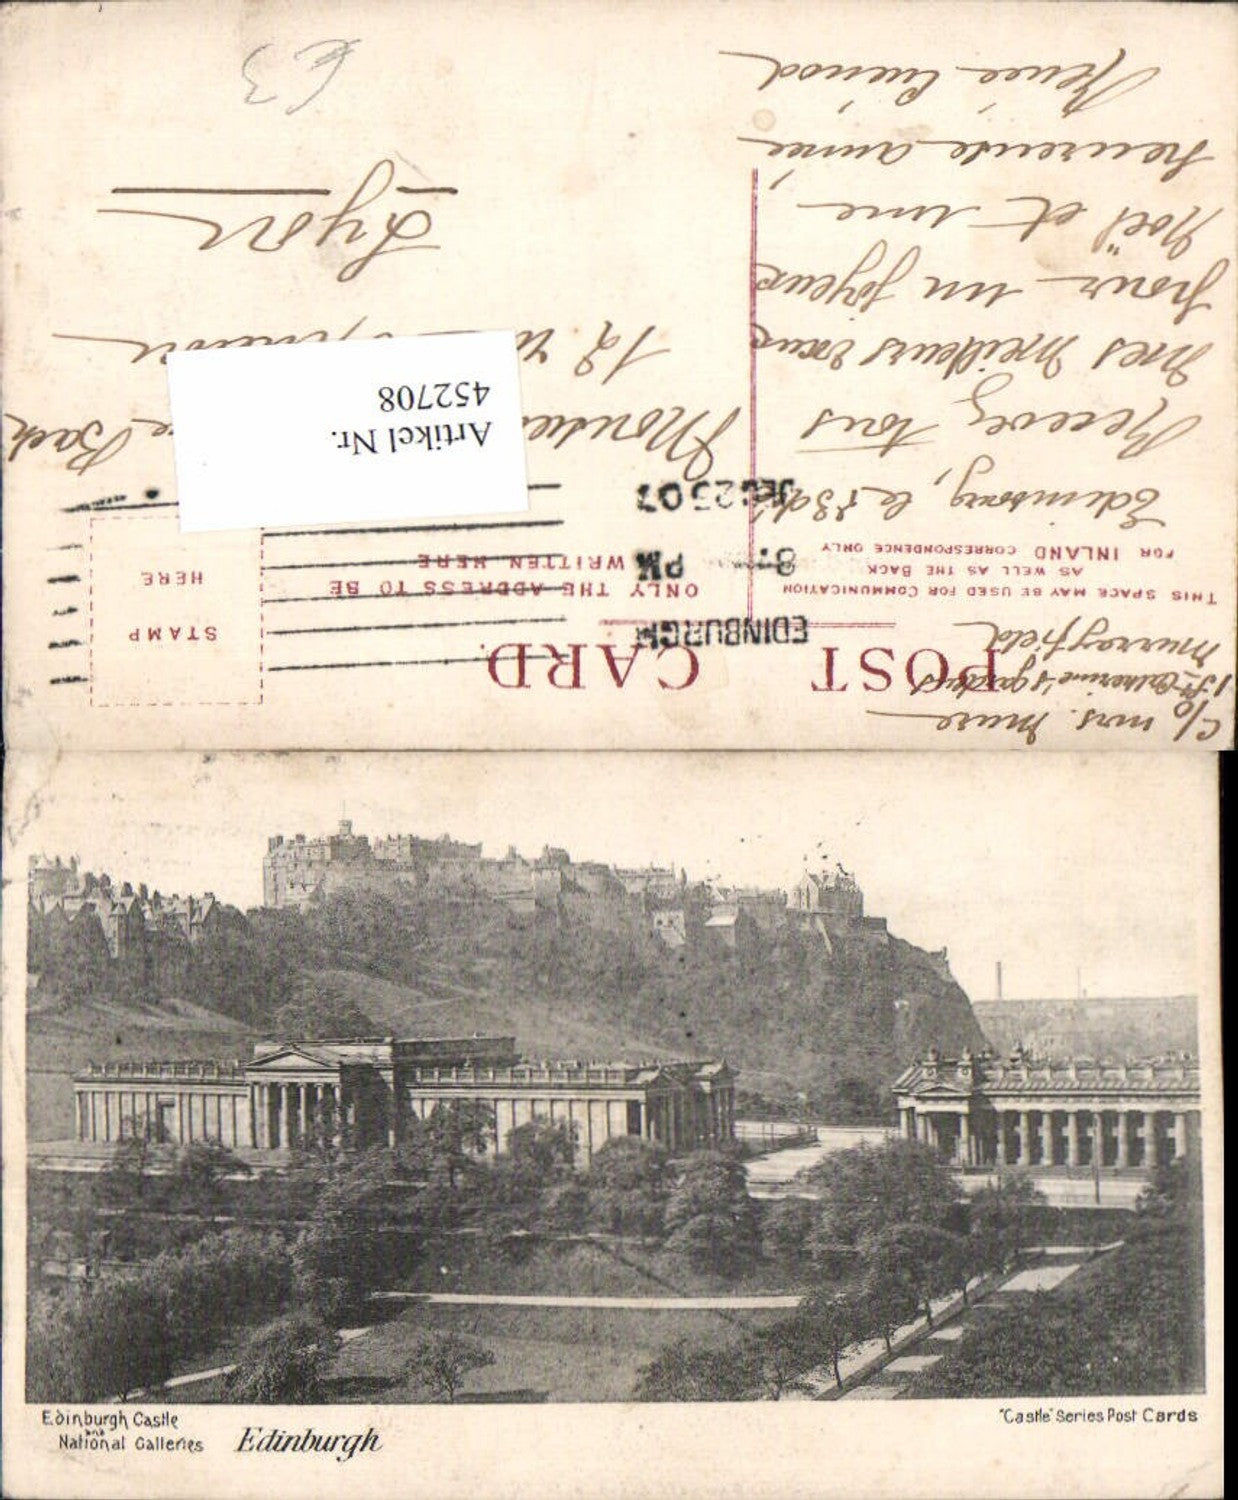 c/o Mrs. Mure
1 St Catherine's gardens
Murrayfield
POST CARD.
THIS SPACE MAY BE USED FOR COMMUNICATION
AS WELL AS THE BACK
FOR INLAND CORRESPONDENCE ONLY
ONLY THE ADDRESS TO BE
WRITTEN HERE
STAMP
HERE
EDINBURGH
PM
DEC 25 07
Edimbourg, le
Recevez tous
mes meilleurs vœux
pour un joyeux
Noël et une
heureuse année
Renée
Artikel Nr.
452708
12
Lyon
£3
Edinburgh Castle
and
National Galleries
Edinburgh
"Castle" Series Post Cards